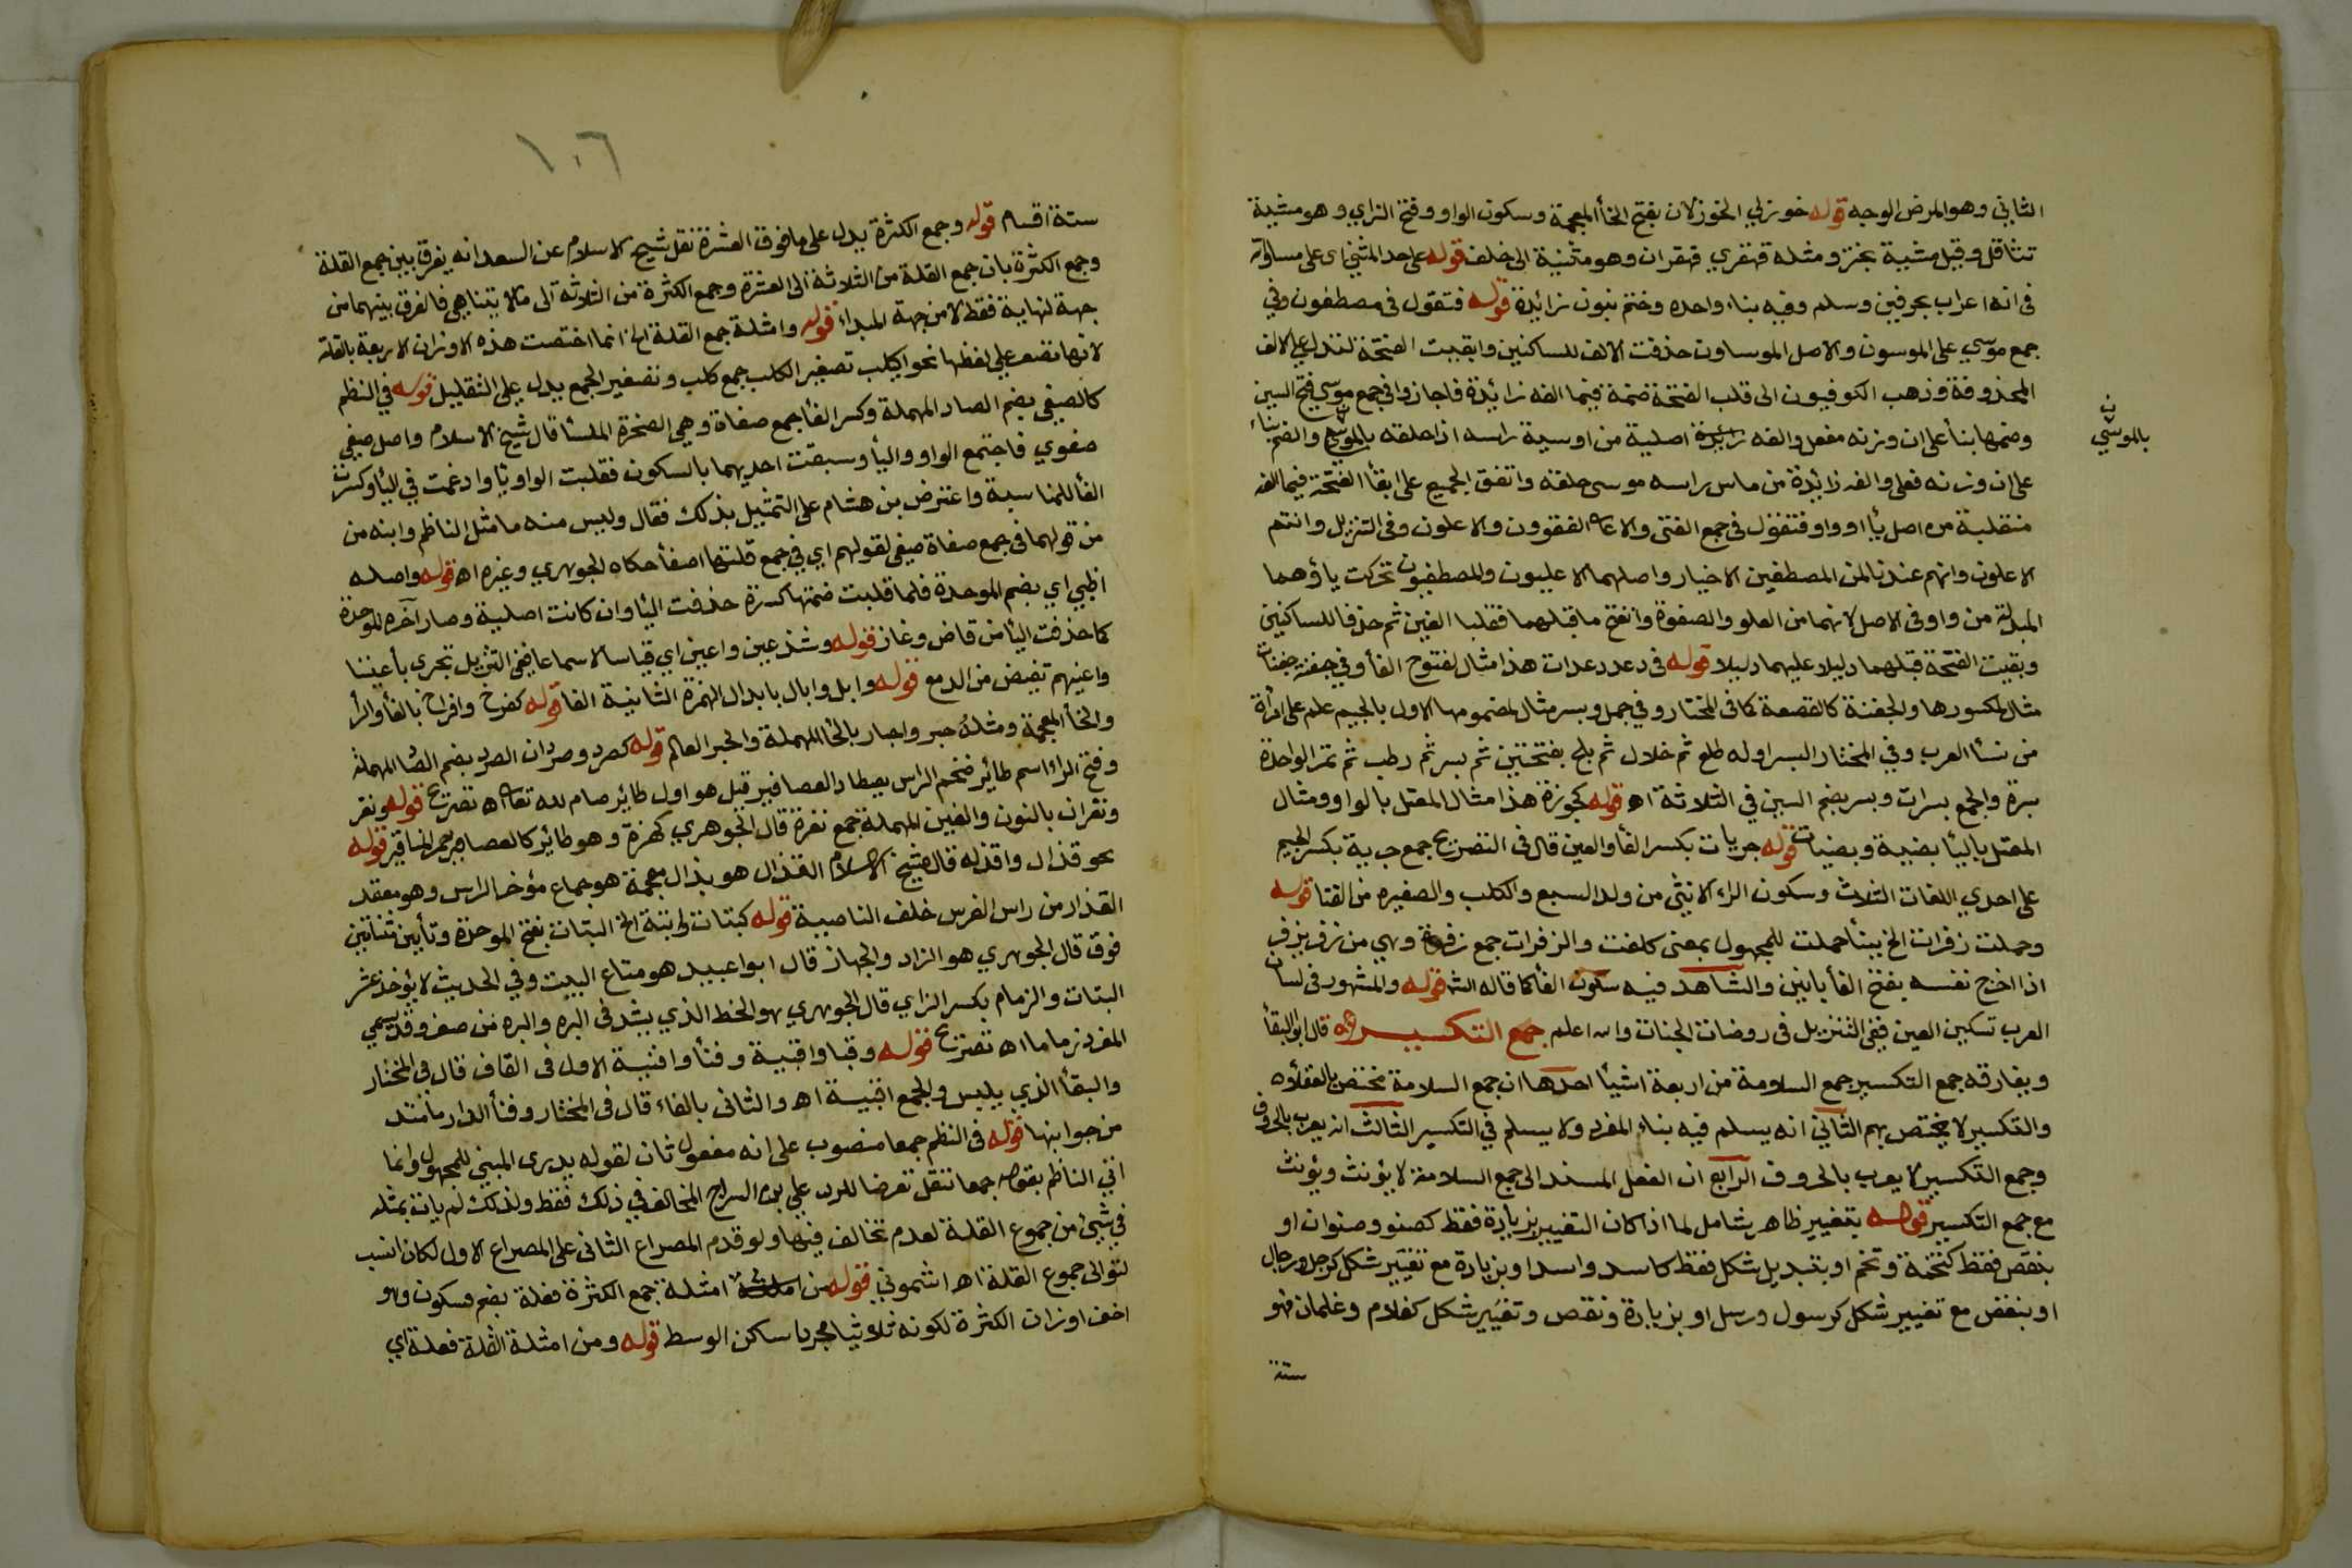 الثاني وهو المرض الوجه قوله خوزلي الخوزلان بفتح الخأ المعجمة وسكون الواو وفتح الزاي وهو مشية
تتثاقل وقيل مشية بخنز ومثله قهقري قهقران وهو مثنية الى خلف قوله على حد المثني اى على مساواته
فى انه اعراب بحرفين وسلم وفيه بناء واحده وختم بنون زائدة قوله فتقول فى مصطفون وفي
جمع موسي على الموسون والاصل الموساون حذفت الالف للساكنين وابقيت الفتحة لتدل على الالف
المحذوفة وذهب الكوفيون الى قلب الفتحة ضمة فيما الفه زائدة فاجازوا في جمع موسي فتح السين
وضمها بنأ على ان وزنه مفعل والفه زائدة اصلية من اوسية راسه اذا حلقه بالموسي والضم بناء
على ان وزنه فعلى والفه زائدة من ماس راسه موسى حلقه واتفق الجميع على ابقأ الفتحة فيما الفه
منقلبة من اصل يأ او واو فتقول فى جمع الفتى والاعلى الفقوون والاعلون وفى التنزيل وانتم
الاعلون وانهم عندنا لمن المصطفين الاخيار واصلهما الاعليون والمصطفيون تحركت ياؤهما
المبدلة من واو فى الاصل لانهما من العلو والصفوة وانفتح ما قبلهما فقلبا الفين ثم حذفا للساكنين
وبقيت الفتحة قبلهما دليلا عليهما دليلا قوله فى دعد دعدات هذا مثال لمفتوح الفأ وفي جفنة جفنات
مثال لمكسورها والجفنة كالقصعة كما فى المختار وفي جمل وبسرة مثال لمضمومها الاول بالجيم علم على امرأة
من نسأ العرب وفي المختار البسر اوله طلع ثم خلال ثم بلح بفتحتين ثم بسر ثم رطب ثم تمر الواحدة
بسرة والجمع بسرات وبسر بضم السين في الثلاثة اه قوله كجوزة هذا مثال المعتل بالواو ومثال
المعتل باليأ بيضة وبيضات قوله جريات بكسر الفأ والعين قال فى التصريح جمع جرية بكسر الجيم
على احدي اللغات الثلاث وسكون الراء الانثى من ولد السبع والكلب والصغيره من القثا قوله
وحملت زفرات الخ ببنأ حملت للمجهول بمعنى كلفت والزفرات جمع زفرة وهي من زفر يزفر
اذا اخرج نفسه بفتح الفأ بانين والشاهد فيه سكون الفأ كما قاله الشه قوله والمشهور فى لسان
العرب تسكين العين ففى التنزيل فى روضات الجنات والله اعلم جمع التكسير قال ابو البقأ
ويفارقه جمع التكسير جمع السلامة من اربعة اشيأ احدها ان جمع السلامة مختص بالعقلأ
والتكسير لا يختص بهم الثاني انه يسلم فيه بناء المفرد ولا يسلم في التكسير الثالث انه يعرب بالحروف
وجمع التكسير لا يعرب بالحروف الرابع ان الفعل المسند الى جمع السلامة لا يؤنث ويؤنث
مع جمع التكسير قوله بتغيير ظاهر يشامل لما اذا كان التغيير بزيادة فقط كصنو وصنوان او
بنقص فقط كتخمة وتخم او بتبديل شكل فقط كاسد واسد او بزيادة مع تغيير شكل كرجل ورجال
او بنقص مع تغيير شكل كرسول ورسل او بزيادة ونقص وتغيير شكل كغلام وغلمان فهو
ستة
بالموسي
١٠٦
ستة اقسام قوله وجمع الكثرة يدل على ما فوق العشرة نقل شيخ الاسلام عن السعد انه يفرق بين جمع القلة
وجمع الكثرة بان جمع القلة من الثلاثة الى العشرة وجمع الكثرة من الثلاثة الى ما لا يتناهى فالفرق بينهما من
جهة لنهاية فقط لا من جهة المبداء قوله وامثلة جمع القلة الخ انما اختصت هذه الاوزان الاربعة بالقلة
لانها تصغر على لفظها نحو اكيلب تصغير اكلب جمع كلب وتصغير الجمع يدل على التقليل قوله في النظم
كالصفي بضم الصاد المهملة وكسر الفأ جمع صفاة وهي الصخرة الملسأ قال شيخ الاسلام واصل صفي
صفوي فاجتمع الواو واليأ وسبقت احديهما بالسكون فقلبت الواو يأ وادغمت في اليأ وكسرت
الفأ للمناسبة واعترض بن هشام على التمثيل بذلك فقال وليس منه ما مثل الناظم وابنه من
من قولهما فى جمع صفاة صفي لقولهم اي في جمع قلتها اصفأ حكاه الجوهري وغيره اه قوله واصله
اظبي اي بضم الموحدة فلما قلبت ضمتها كسرة حذفت اليأ وان كانت اصلية وصار آخره الموحدة
كما حذفت اليأ من قاض وغاز قوله وشذ عين واعين اي قياسا لا سماعا ففى التنزيل تجرى بأعيننا
واعينهم تفيض من الدمع قوله وابل وابال بابدال الهمزة الثانية الفا قوله كفرخ وافراخ بالفأ والرأ
والخأ المعجمة ومثله حبر واحبار بالحأ المهملة والحبر العالم قوله كصرد وصردان الصرد بضم الصأ المهملة
وفتح الراء اسم طائر ضخم الراس يصطاد العصافير قيل هو اول طائر صام لله تعالى اه تصريح قوله ونغر
ونغران بالنون والغين المهملة جمع نغرة قال الجوهري كهمزة وهو طائر كالعصافير حمر المناقير قوله
نحو قذال واقذله قال شيخ الاسلام القذال هو بذال معجمة هو جماع مؤخر الراس وهو معقد
القذار من راس الفرس خلف الناصية قوله كبتات وابتة الخ البتات بفتح الموحدة وتأيين مثناتين
فوق قال الجوهري هو الزاد والجهاز قال ابوا عبيد هو متاع البيت وفي الحديث لا يؤخذ عشر
البتات والزمام بكسر الزاي قال الجوهري هو الخط الذي يشد فى البره والبره من صفر وقد يسمي
المفرد زماما اه تصريح قوله وقبا واقبية وفنأ وافنية الاول فى القاف قال في المختار
والبقأ الذي يلبس والجمع اقبية اه والثانى بالفاء قال فى المختار وفنأ الدار ما امتد
من جوانبها قوله فى النظم جمعا منصوب على انه مفعول ثان لقوله يدرى المبني للمجهول وانما
اتي الناظم بقوله جمعا تنقل تعرضا للرد علي بن السراج المخالف في ذلك فقط ولذلك لم يات بمثله
في شئ من جموع القلة لعدم تخالف فيها ولو قدم المصراع الثانى على المصراع الاول لكان انسب
لتوالى جموع القلة اه اشموني قوله من امثلة جمع الكثرة فعلة بضم فسكون وهو
اخف اوزان الكثرة لكونه ثلاثيا مجردا ساكن الوسط قوله ومن امثلة القلة فعلة اي